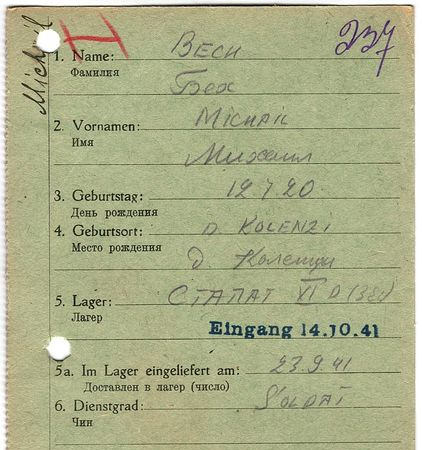 Michail
237
1. Name: BECH
Фамилия
Бех
2. Vornamen: MICHAIL
Имя
Михаил
3. Geburtstag: 12.7.20.
День рождения
4. Geburtsort: D. KOLENZI
Место рождения
д Коленци
5. Lager: СТАЛАГ VI D
Лагер
Eingang 14.10.41
5a. Im Lager eingeliefert am: 23.9.41
Доставлен в лагер (число)
6. Dienstgrad: SOLDAT
Чин